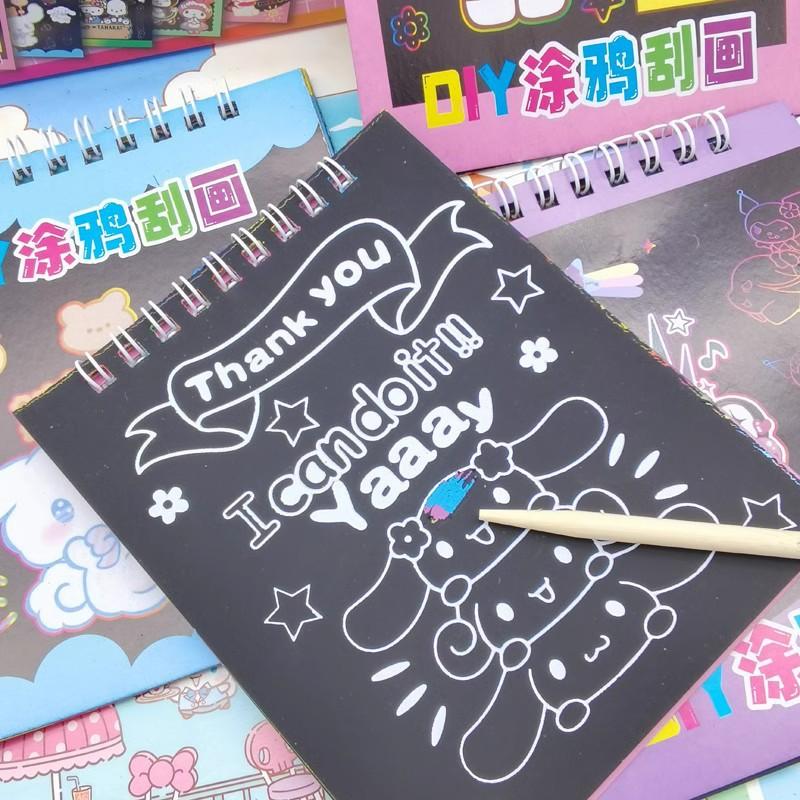 DIY涂鸦刮画
Y涂鸦刮画
Thank you
I can do it!!
Yaaay
DIY涂